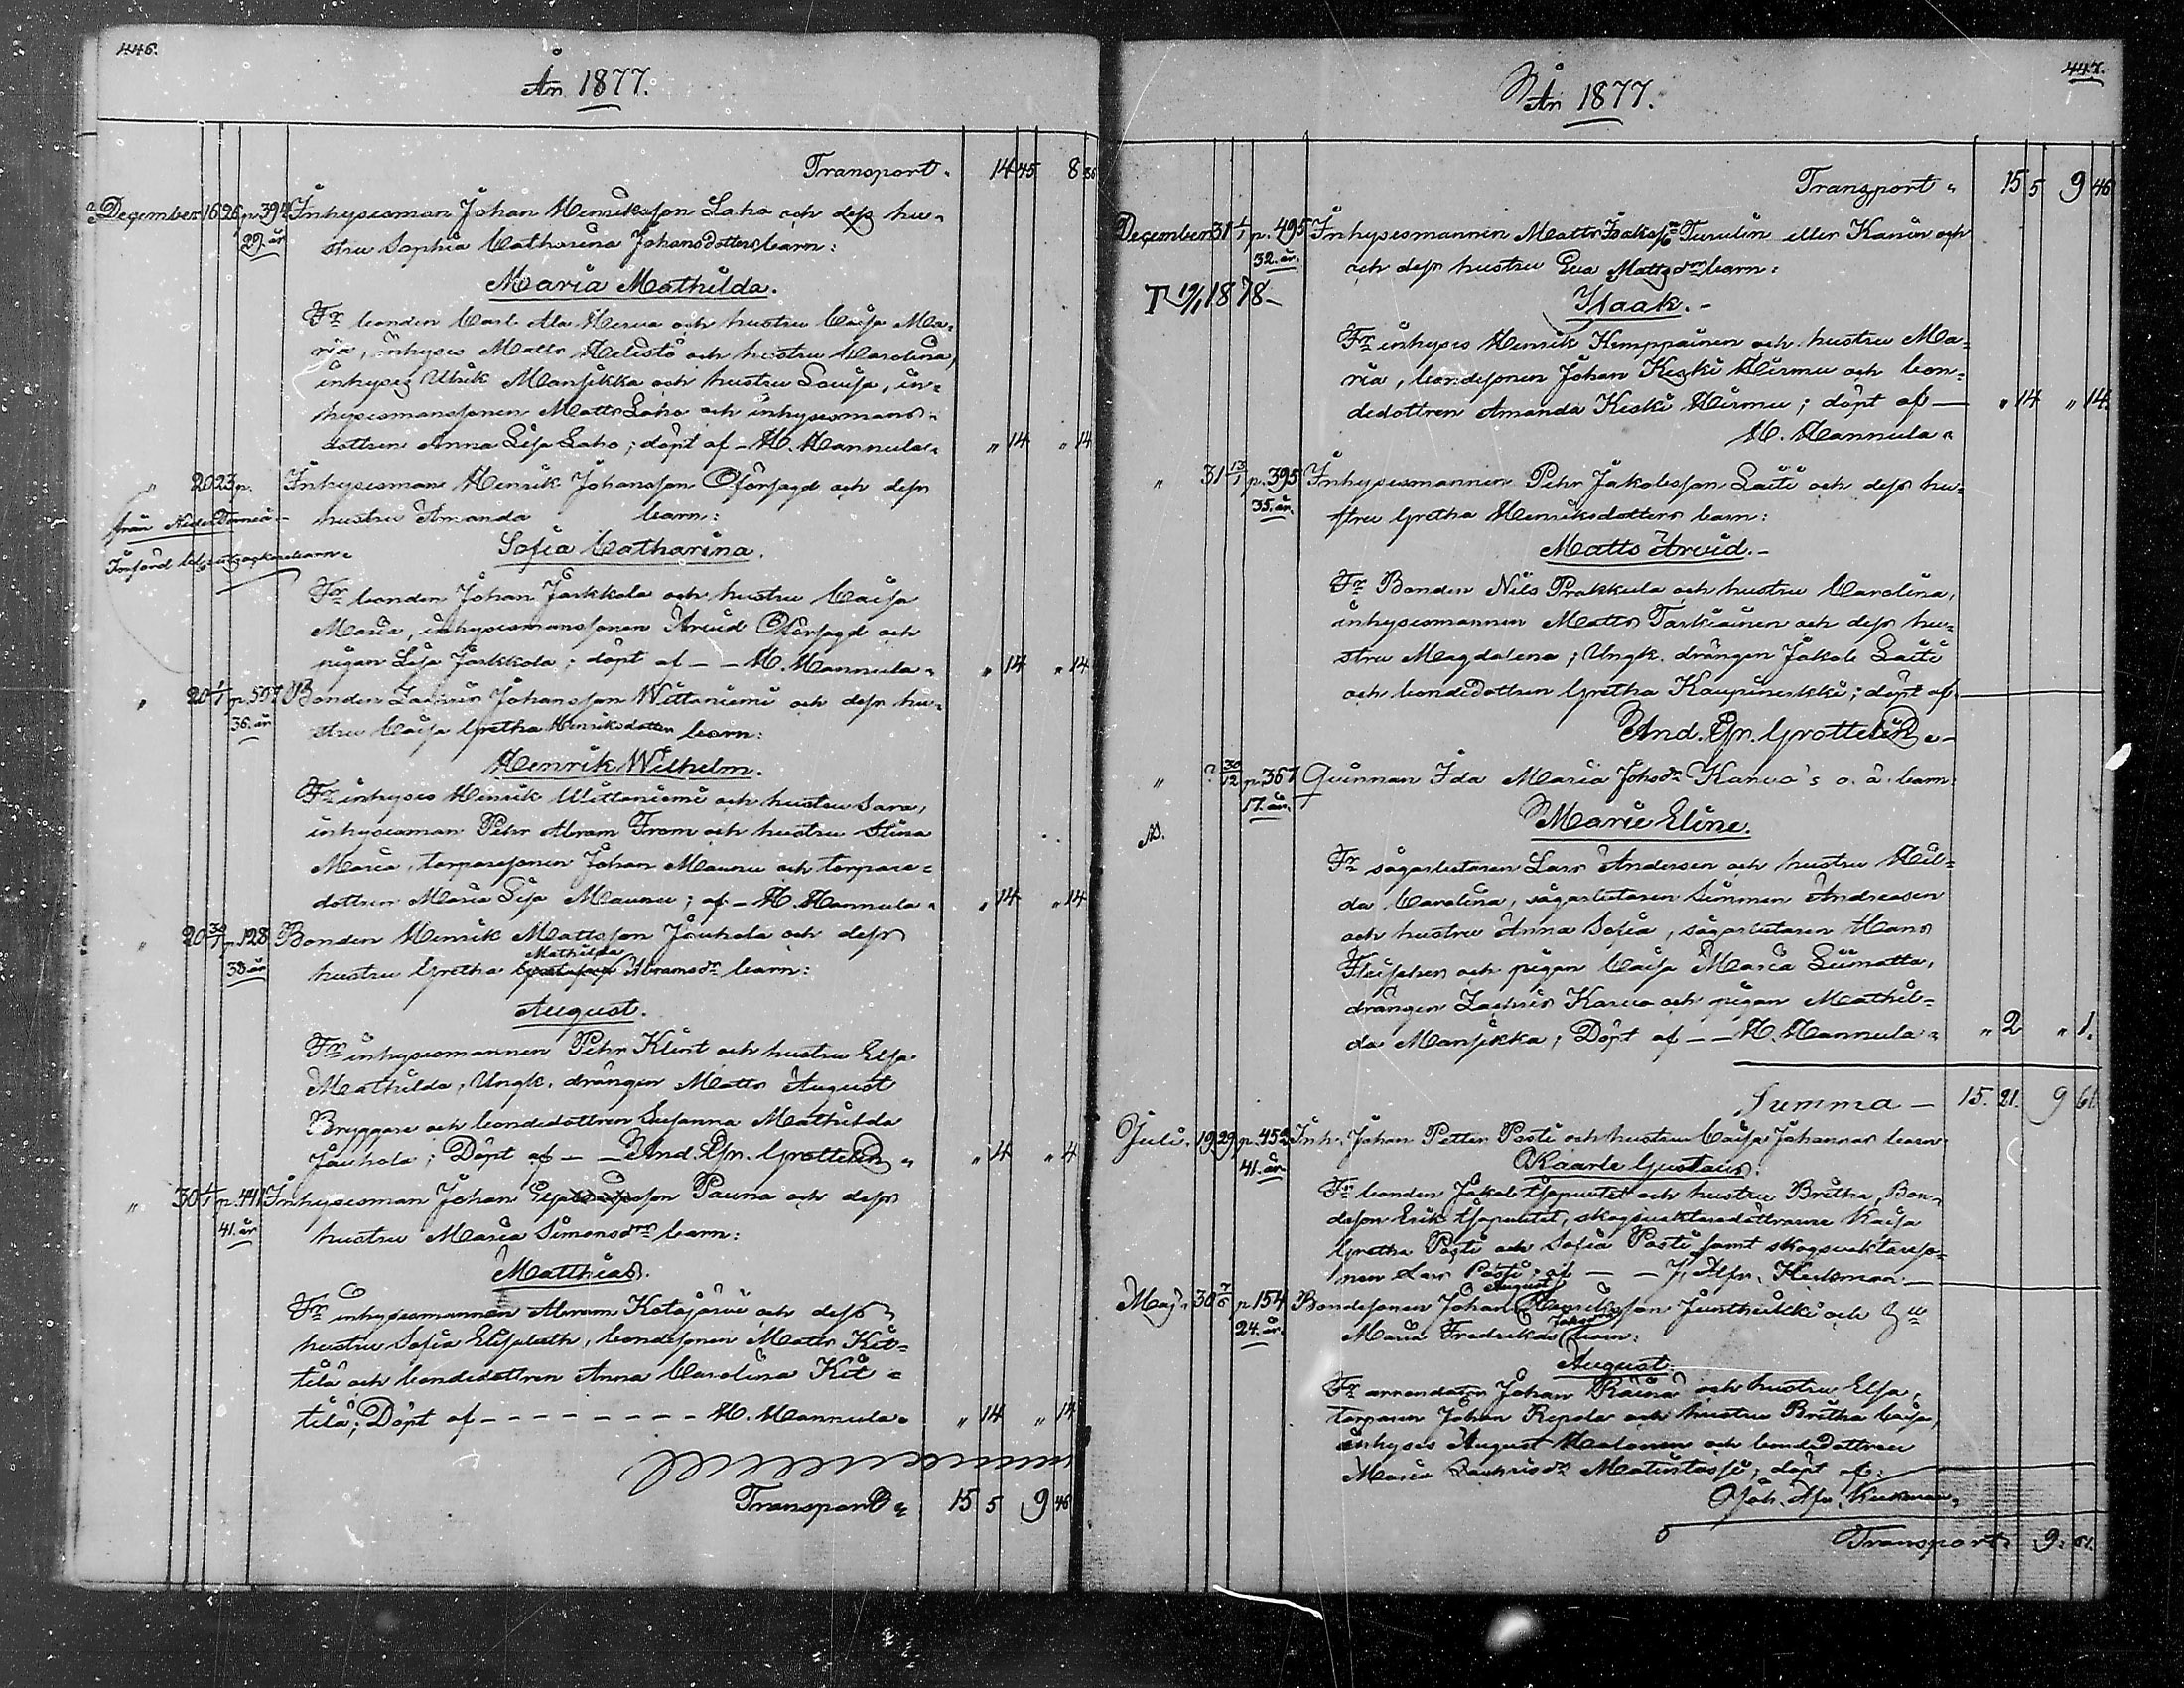 446.
År 1877.
Transport. 14 45 8 36
December 16 26 p. 394 Inhysesman Johan Henriksson Laho och dess hu-
29. år stru Sophia Catharina Johansdotters barn:
Maria Mathilda.
Fr bonden Carl Ala Herva och hustru Caisa Ma-
ria, inhyses Matts Helistö och hustru Carolina,
inhyses Ulrik Mansikka och hustru Lovisa, in-
hysesmanssonen Matts Laho och inhysesmans-
dottren Anna Lisa Laho; döpt af - H. Hannula. " 14 " 14
" 20 23 p. Inhysesman Henrik Johansson Oförsagd och dess
från Neder Torneå hustru Amanda barn:
Sofia Catharina.
Fr bonden Johan Jarkkola och hustru Caisa
Maria, inhysesmanssonen Arvid Oförsagd och
pigan Lisa Jarkkola; döpt af - - H. Hannula. " 14 " 14
" 20 1/1 p. 557 Bonden Zachris Johansson Wittaniemi och dess hu-
36. år stru Caisa Gretha Henriksdotters barn:
Henrik Wilhelm.
Fr inhyses Henrik Wittaniemi och hustru Sara,
inhysesman Pehr Abram From och hustru Stina
Maria, torparesonen Johan Maunu och torpare-
dottren Maria Lisa Maunu; af - H. Hannula. " 14 " 14
" 20 30/1 p. 128 Bonden Henrik Mattsson Jauhola och dess
Mathilda
38 år hustru Gretha Abramsdr barn:
August.
Fr inhysesmannen Pehr Klint och hustru Elsa
Mathilda, Ungk. drängen Matts August
Bryggare och bondedottren Susanna Mathilda
Jauhola; Döpt af - - And. Gr. Grottelin " 14 " 4
" 30 1/1 p. 441 Inhysesman Johan Pauna och dess
41. år hustru Maria Simonsdrs barn:
Matthias.
Fr inhysesmannen Abram Kotajärvi och dess
hustru Sofia Elisabeth, bondesonen Matts Kit-
tilä och bondedottren Anna Carolina Kit-
tilä; Döpt af - - - - - - - - H. Hannula. " 14 " 14
Transport 15 5 9 46
447.
År 1877.
Transport " 15 5 9 46
December 31 1/1 p. 495 Inhysesmannen Matts Isaksson Turulin eller Kanin och
32. år. och dess hustru Eva Mattsdrs barn:
T 19/1 1878-
Isaak.-
Fr inhyses Henrik Kimppainen och hustru Ma-
ria, bondesonen Johan Keski Hirmu och bon-
dedottren Amanda Keski Hirmu; döpt af — " 14 " 14.
H. Hannula.
" 31 13/1 p. 395 Inhysesmannen Pehr Jakobsson Laiti och dess hu-
35. år. stru Gretha Henriksdotters barn:
Matts Arvid.-
Fr Bonden Nils Prakkula och hustru Carolina,
inhysesmannen Matts Tarkiainen och dess hu-
stru Magdalena; Ungk. drängen Jakob Laiti
och bondedottren Gretha Kaupinerkki; döpt af
And. Gr. Grottelin.-
" ? 30/12 p. 367 Quinnan Ida Maria Johsdr Karvo's o. ä. barn:
17. år.
Marie Eline.
Fr sågarbetaren Lars Andersen och hustru Hil-
da Carolina, sågarbetaren Simmen Andreasen
och hustru Anna Sofia, sågarbetaren Hans
Fleischer och pigan Caisa Maria Liimatta,
drängen Zachris Karvo och pigan Mathil-
da Mansikka; Döpt af - - H. Hannula. " 2 " 1.
Summa — 15. 21. 9 61.
Juli. 19 29 p. 452 Inh. Johan Petter Posti och hustru Caisa Johannas barn
41. år.
Kaarle Gustaus.
Fr bonden Jakob Isopuutet och hustru Britha, Bon-
deson Erik Isopuutet, skogsvaktaredöttrarne Kaisa
Gretha Posti och Sofia Posti samt skogsvaktareso-
nen Lars Posti; af — — J. Alfr. Heikman. —
August
Maj. 30 7/6 p. 154 Bondesonen Johan Henriksson Juntheikki och h u
24. år. Maria Fredrikas barn:
August.
Fr arrendatorn Johan Räinä och hustru Elsa,
torparen Johan Repola och hustru Britha Caisa,
inhyses August Halonen och bondedottren
Maria Zachrisdr Matintassi; döpt af:
Joh. Alfr. Heikman.
Transport. 9. 61.